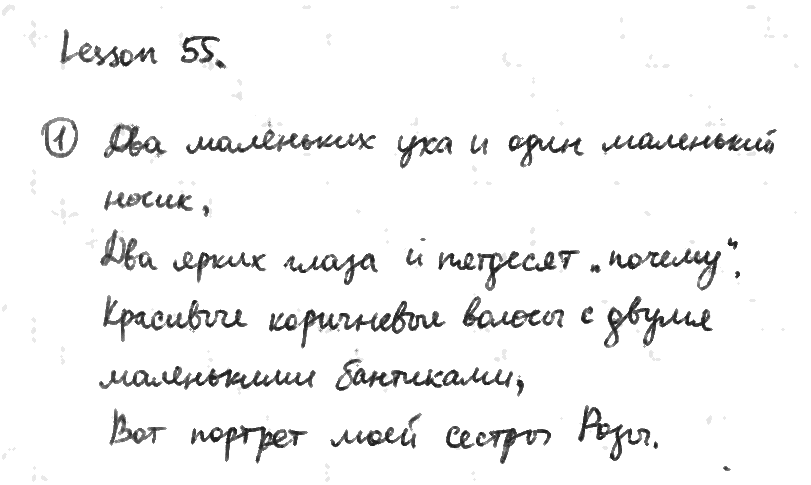 Lesson 55.
① Два маленьких уха и один маленький
носик,
Два ярких глаза и пятдесят „почему“.
Красивые коричневые волосы с двумя
маленькими бантиками,
Вот портрет моей сестры Розы.